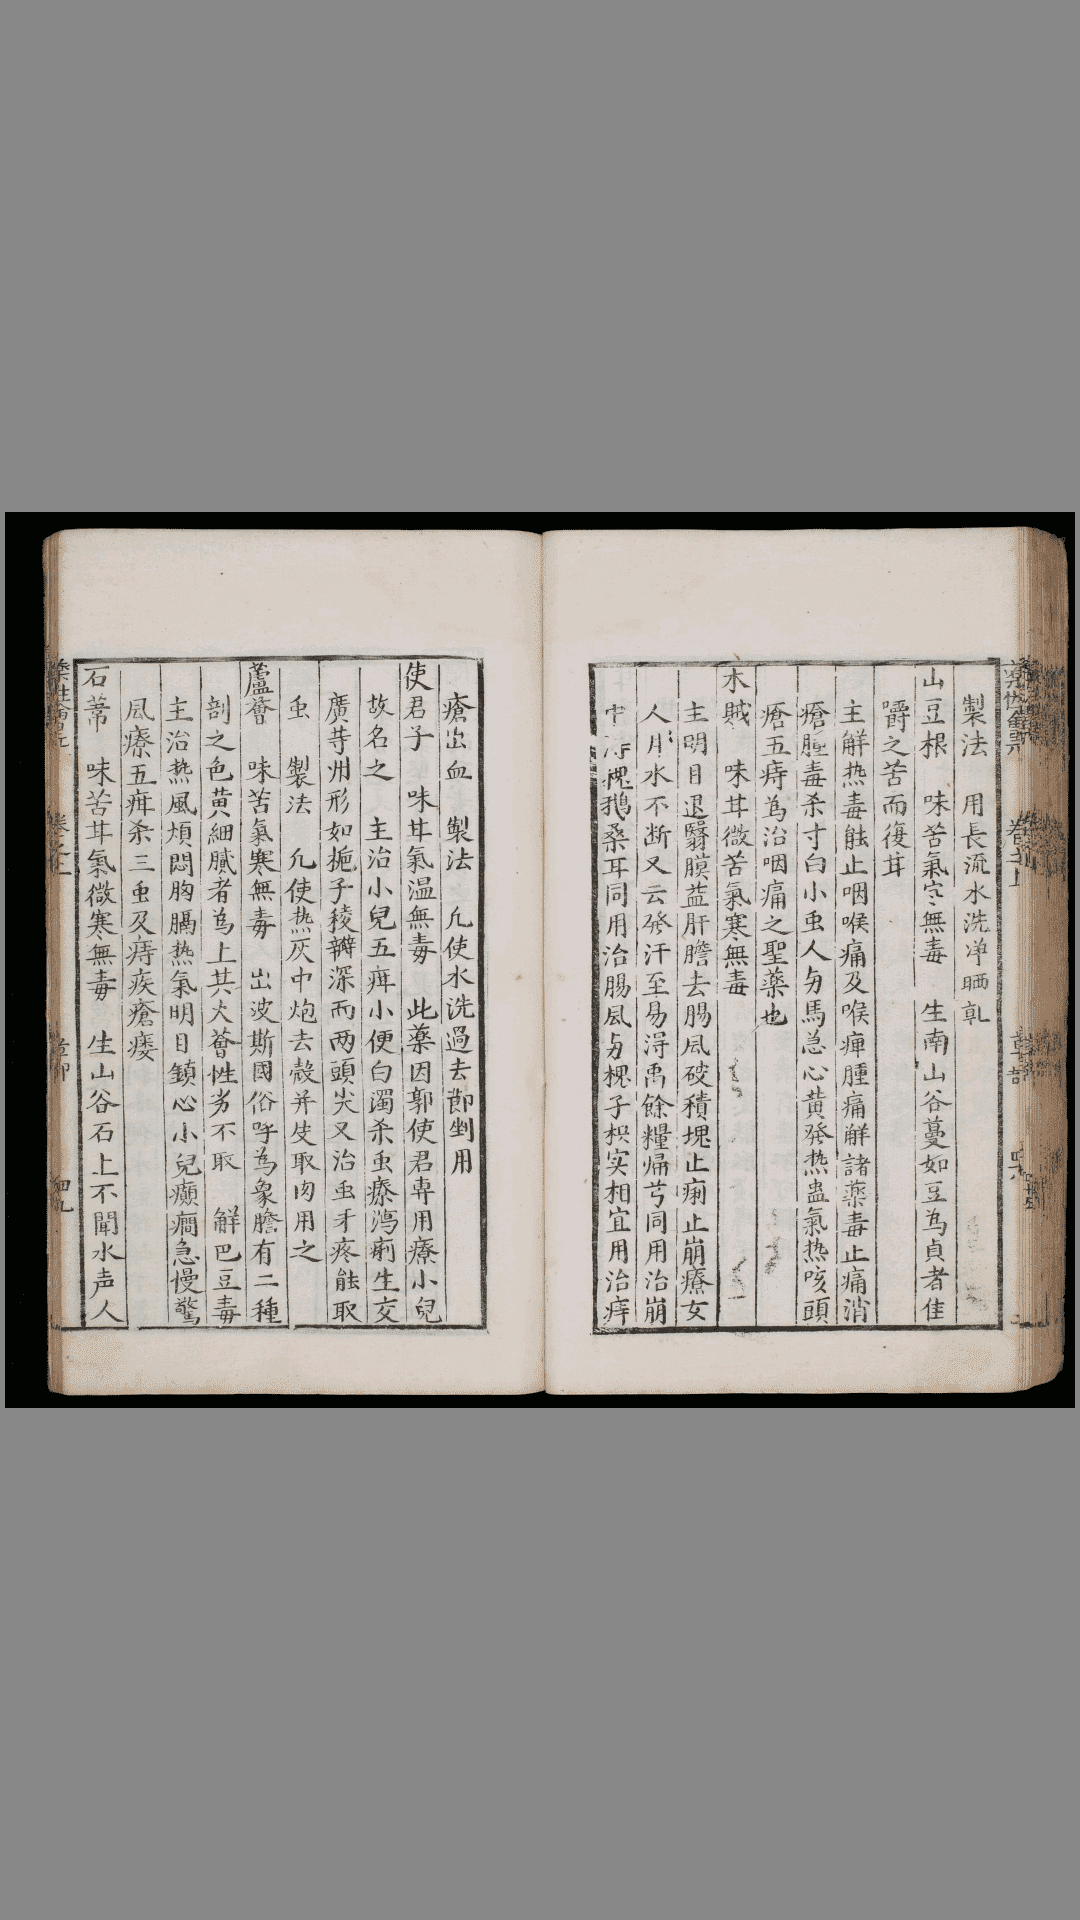 製法 用長流水洗淨晒乹
山豆根 味苦氣寒無毒 生南山谷蔓如豆為貞者佳
嚼之苦而復甘
主解热毒能止咽喉痛及喉痺腫痛解諸藥毒止痛消
瘡腫毒杀寸白小虫人与馬急心黄發热蛊氣热咳頭
瘡五痔為治咽痛之聖藥也
木賊 味甘微苦氣寒無毒
主明目退翳膜益肝膽去腸風破積塊止痢止崩療女
人月水不断又云發汗至易得禹餘糧歸芎同用治崩
中 槐鵝桑耳同用治腸風与槐子枳实相宜用治痔
瘡出血 製法 凢使水洗過去節剉用
使君子 味甘氣温無毒 此藥因郭使君專用療小兒
故名之 主治小兒五疳小便白濁杀虫療瀉痢生交
廣䓁州形如梔子稜瓣深而两頭尖又治虫牙疼能取
虫 製法 凢使热灰中炮去殻并皮取肉用之
蘆薈 味苦氣寒無毒 出波斯國俗呼為象膽有二種
剖之色黄細膩者為上其大薈性劣不取 解巴豆毒
主治热風煩悶胸膈热氣明目鎮心小兒癲癇急慢驚
風療五疳杀三虫及痔疾瘡瘻
石 味苦甘氣微寒無毒 生山谷石上不聞水声人